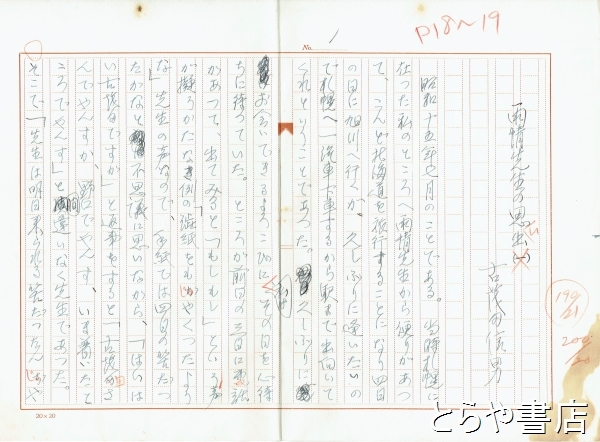 P18〜19
No. 1
雨情先生の思い出(一)
古茂田信男
昭和十五年七月のことである。当時札幌に
在った私のところへ雨情先生から便りがあっ
て、こんど北海道を旅行することになり四日
の日に旭川へ行くが、久しぶりに逢いたいの
で札幌へ一汽車下車するから駅まで出向いて
くれということであった。久しぶりに
お会いできるよろこびに、その日を心待
ちに待っていた。ところが前日の三日に電話
があって、出てみると「もしもし」という声
が擬うかたなき例の渋紙をもじゃくったよう
な先生の声なので、手紙では四日の筈だっ
たがなと不思議に思いながら、「はい
い古茂田ですが」と返事をすると「古茂田さ
んでやんすか、野口でやんす、いま着いたと
ころでやんす」と間違いなく先生であった。
そこで「先生は明日来られる筈だったんじゃ
20×20
199/21
200/20
とらや書店